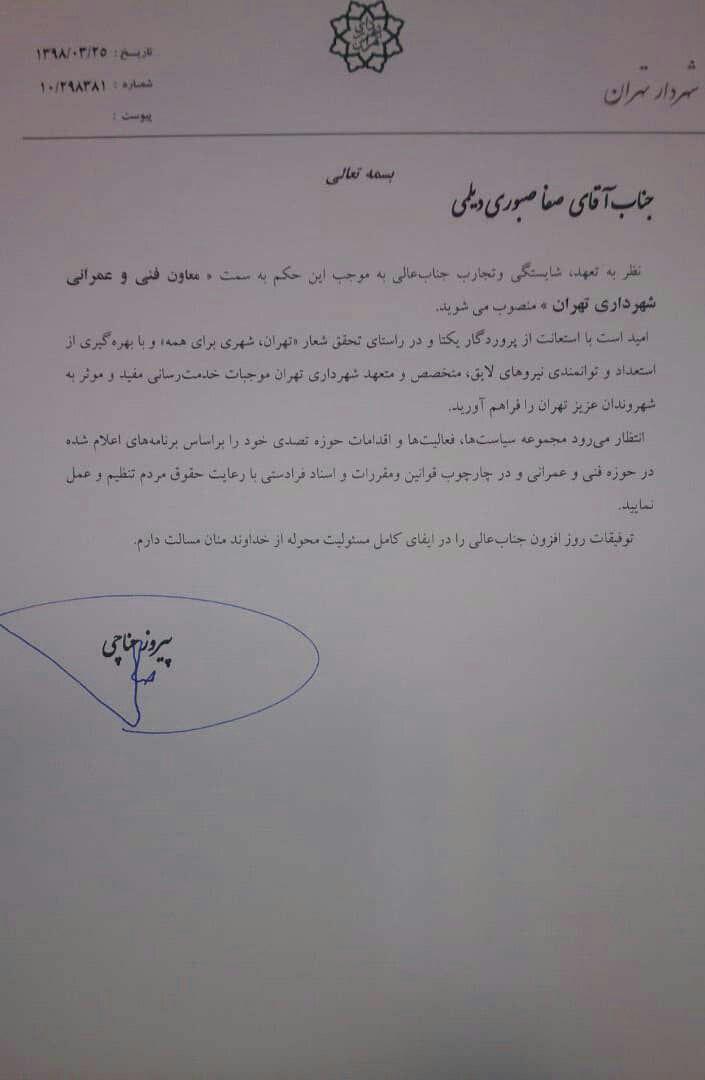 شهردار تهران
تاریخ : ۱۳۹۸/۰۳/۲۵
شماره : ۱۰/۲۹۸۳۸۱
پیوست :
بسمه تعالی
جناب آقای صفا صبوری دیلمی
نظر به تعهد، شایستگی وتجارب جناب‌عالی به موجب این حکم به سمت « معاون فنی و عمرانی
شهرداری تهران » منصوب می شوید.
امید است با استعانت از پروردگار یکتا و در راستای تحقق شعار «تهران، شهری برای همه» و با بهره‌گیری از
استعداد و توانمندی نیروهای لایق، متخصص و متعهد شهرداری تهران موجبات خدمت‌رسانی مفید و موثر به
شهروندان عزیز تهران را فراهم آورید.
انتظار می‌رود مجموعه سیاست‌ها، فعالیت‌ها و اقدامات حوزه تصدی خود را براساس برنامه‌های اعلام شده
در حوزه فنی و عمرانی و در چارچوب قوانین ومقررات و اسناد فرادستی با رعایت حقوق مردم تنظیم و عمل
نمایید.
توفیقات روز افزون جناب‌عالی را در ایفای کامل مسئولیت محوله از خداوند منان مسالت دارم.
پیروز حناچی